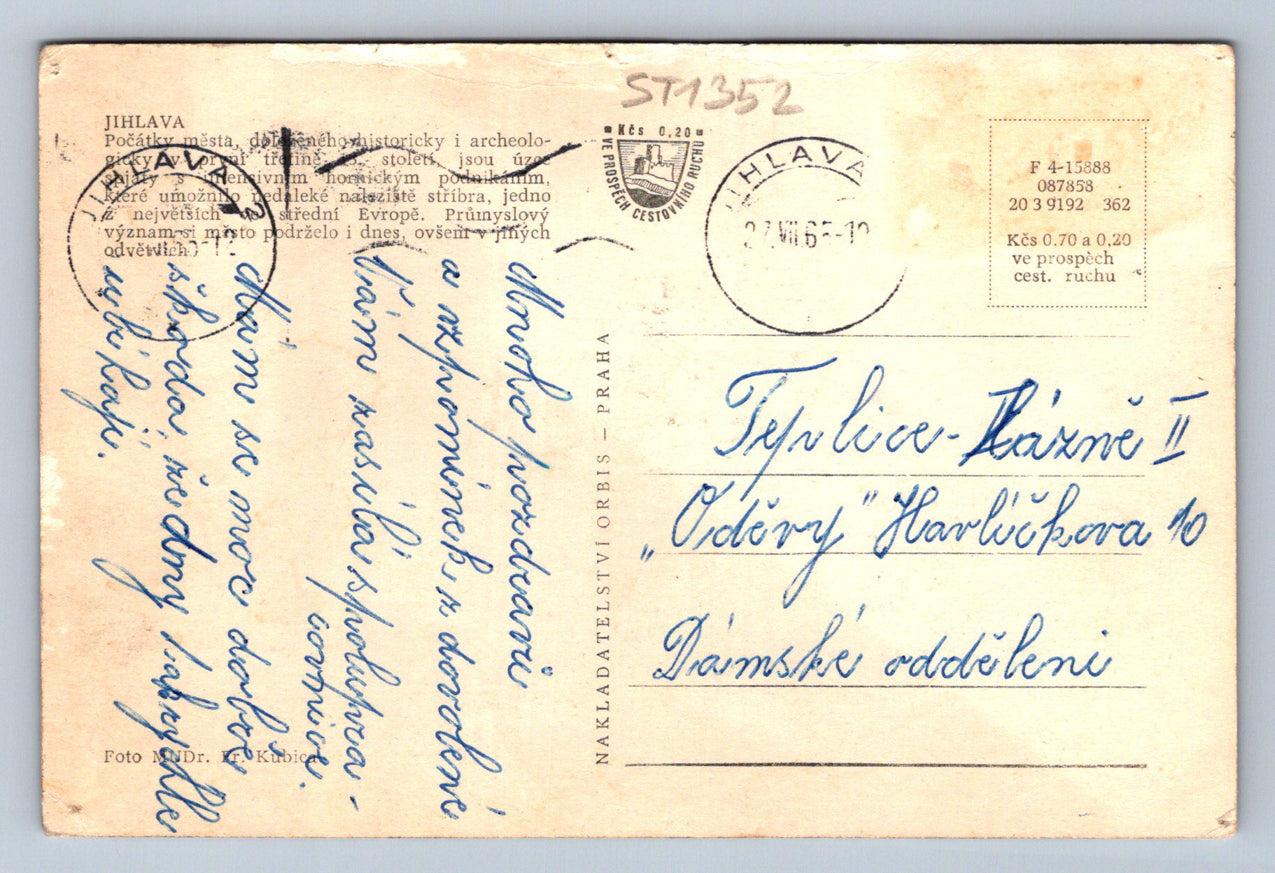 ST1352
JIHLAVA
Počátky města, doloženého historicky i archeolo-
gicky v první třetině 13. století, jsou úzce
spjaty s intensivním hornickým podnikáním,
které umožnilo nedaleké naleziště stříbra, jedno
z největších ve střední Evropě. Průmyslový
význam si město podrželo i dnes, ovšem v jiných
odvětvích.
JIHLAVA 2
Kčs 0,20
VE PROSPĚCH CESTOVNÍHO RUCHU
JIHLAVA
27.VII.65-12
F 4-15888
087858
20 3 9192 362
Kčs 0.70 a 0,20
ve prospěch
cest. ruchu
Mnoho pozdravů
a vzpomínek z dovolené
Vám zasílá spolupra-
covnice.
Mám se moc dobře
škoda, že dny tak rychle
ubíhají.
Foto MUDr. Fr. Kubica
NAKLADATELSTVÍ ORBIS – PRAHA
Teplice-Lázně II
„Oděvy" Havlíčkova 10
Dámské oddělení